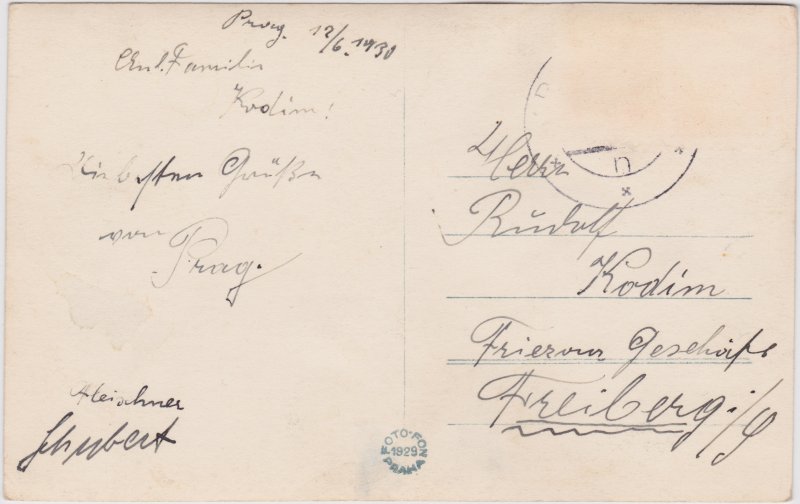 Prag. 12/6. 1930
Familie
Kodim!
Liebsten Grüße
von
Prag.
Fleischner
Schubert
Herrn
Rudolf
Kodim
Geschäft
Freiberg i/S
FOTO-FON
1929
PRAHA